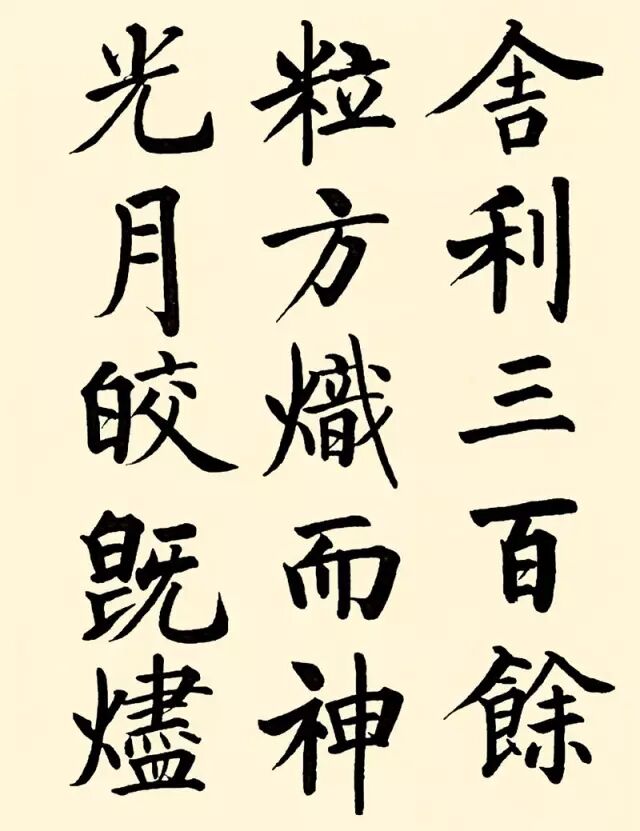 舎利三百餘
粒方熾而神
光月皎既燼